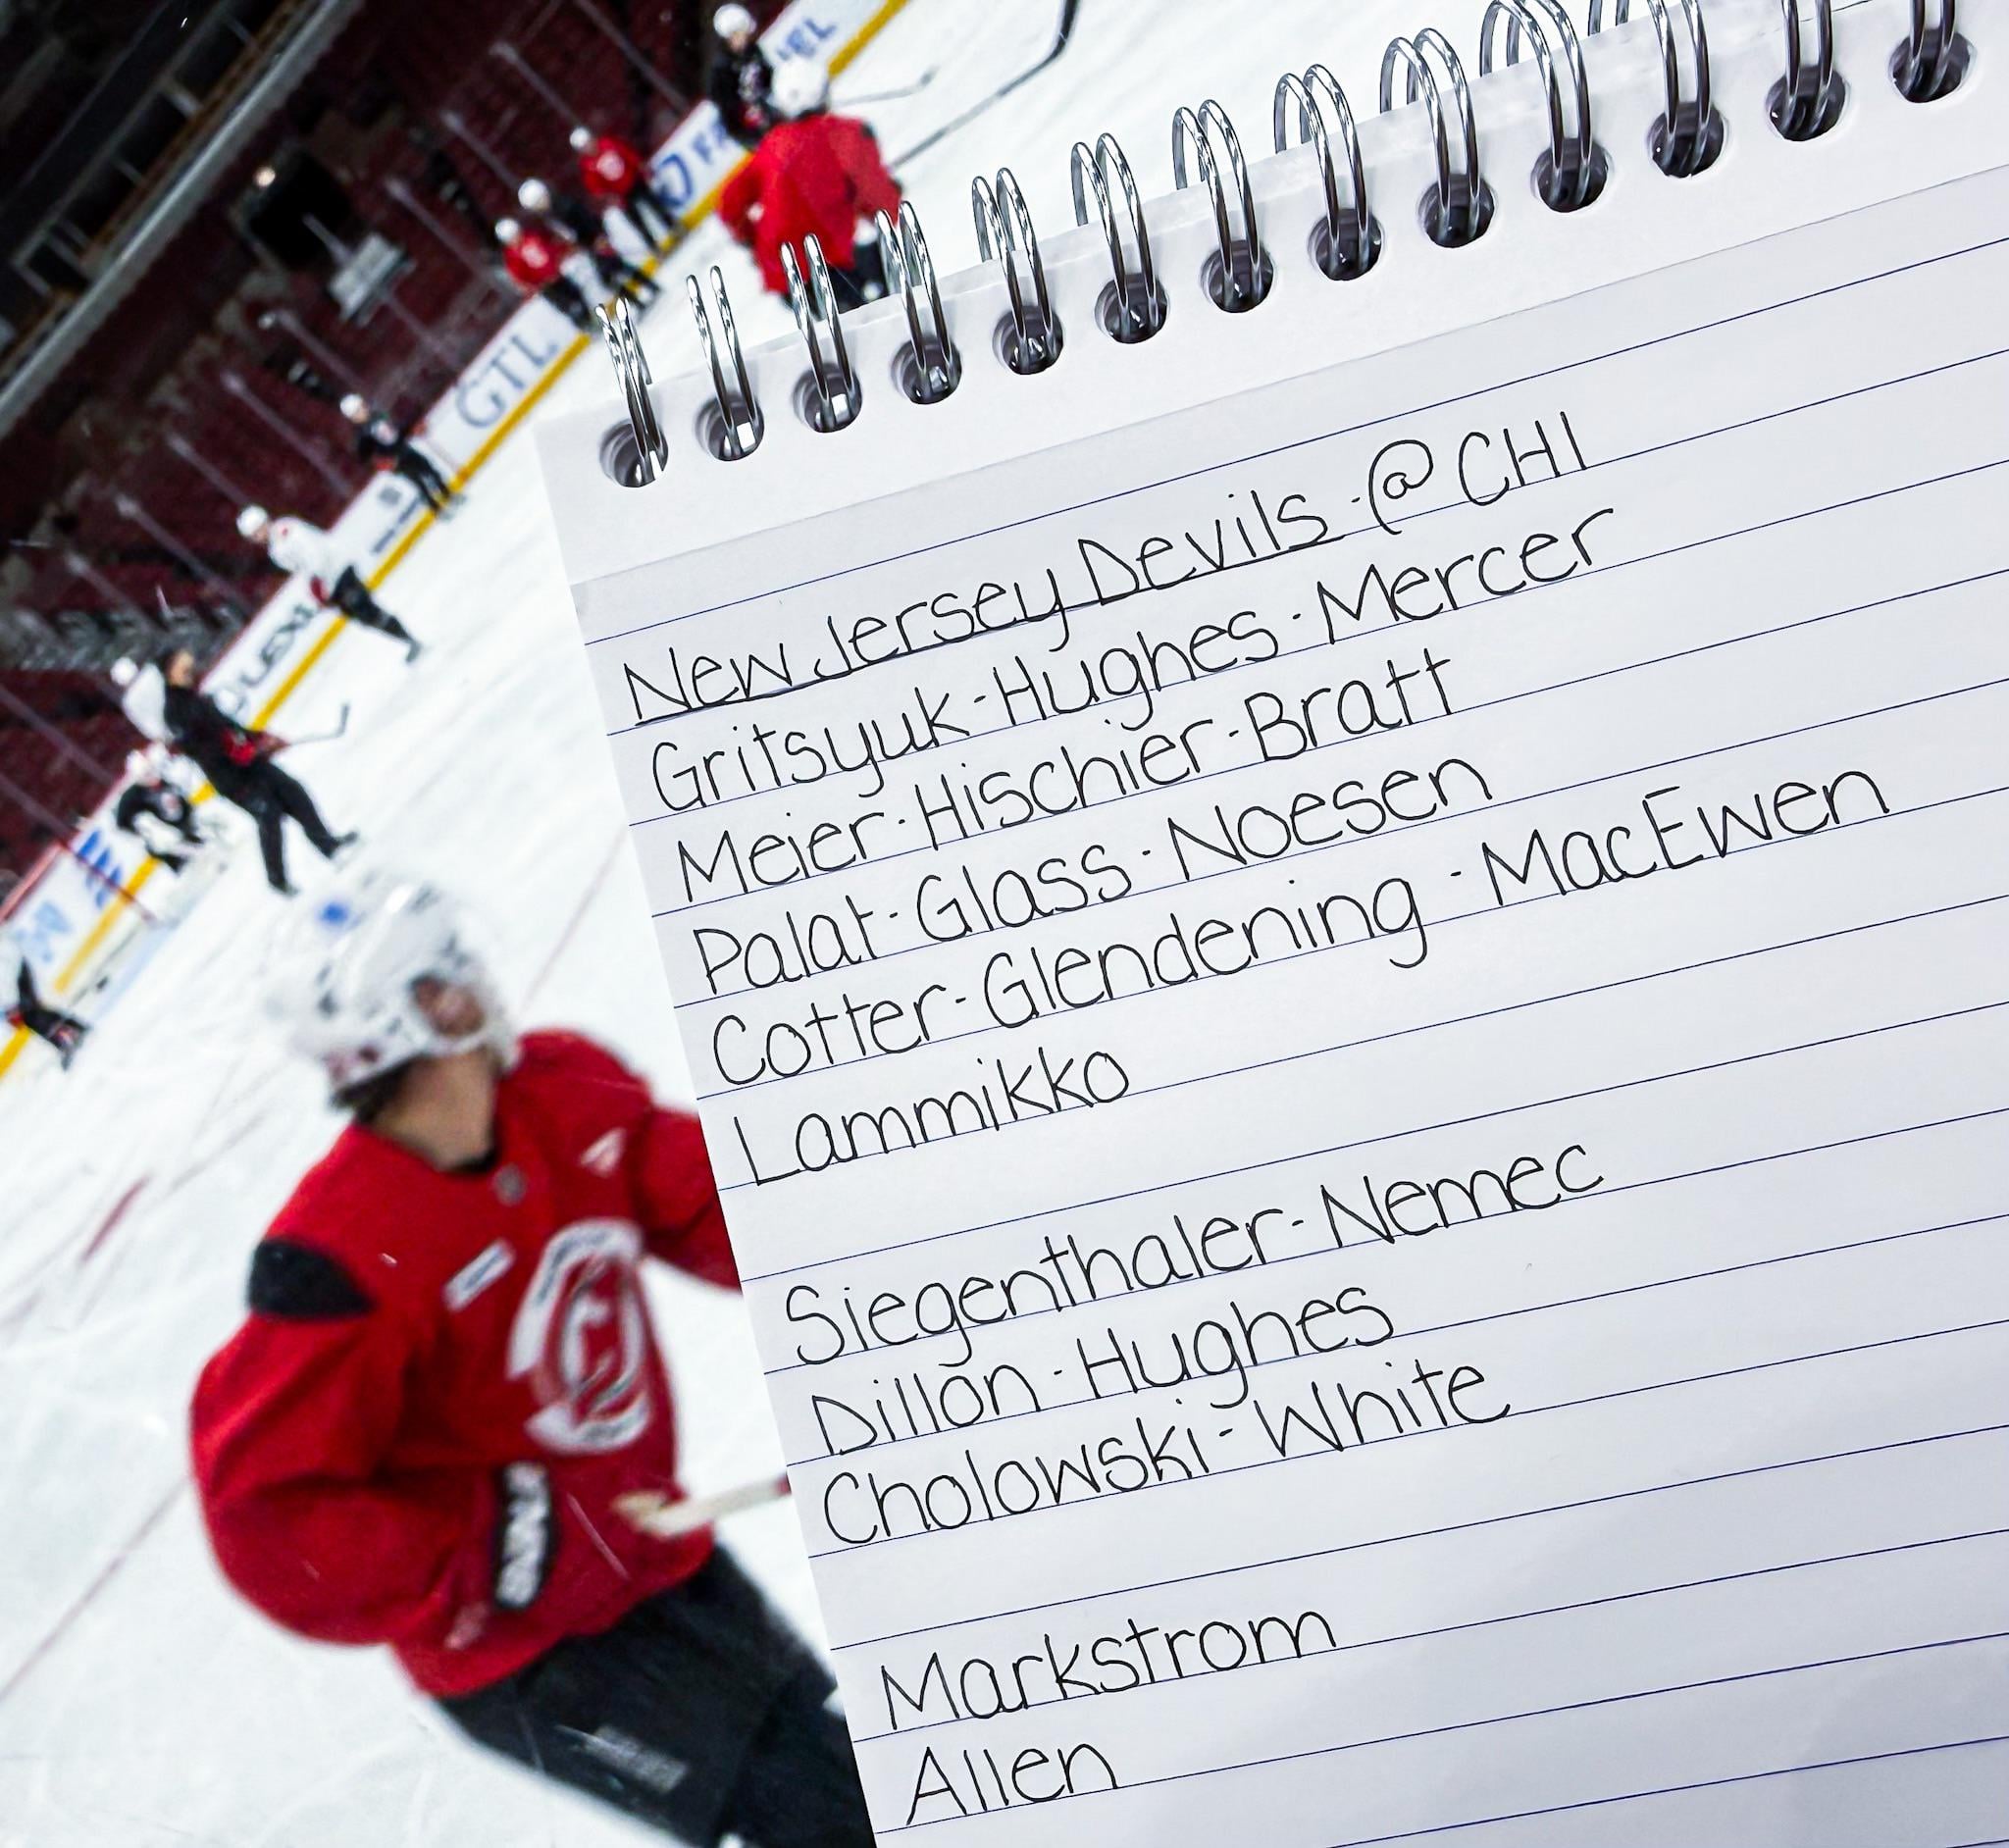 GTL
New Jersey Devils · @ CHI
Gritsyuk - Hughes · Mercer
Meier · Hischier · Bratt
Palat · Glass · Noesen
Cotter - Glendening · MacEwen
Lammikko
Siegenthaler · Nemec
Dillon · Hughes
Cholowski - White
Markstrom
Allen